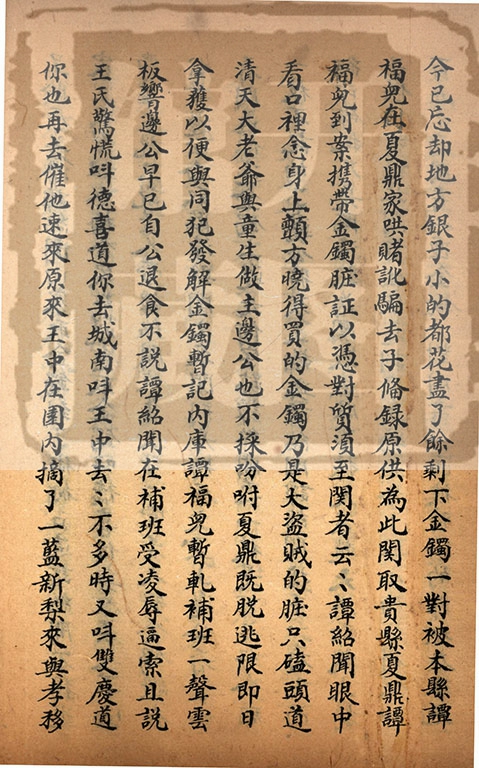 今已忘却地方銀子小的都花盡了餘剩下金鐲一對被本縣譚
福兒在夏鼎家哄賭訛騙去了備錄原供為此関取貴縣夏鼎譚
福兒到案携帶金鐲賍証以憑對質須至関者云〻譚紹聞眼中
看口裡念身上顫方曉得買的金鐲乃是大盜賊的賍只磕頭道
清天大老爺與童生做主邊公也不採吩咐夏鼎既脱逃限即日
拿獲以便與同犯發解金鐲暫記內庫譚福兒暫軋補班一聲雲
板響邊公早已自公退食不説譚紹聞在補班受凌辱逼索且説
王氏驚慌呌德喜道你去城南呌王中去〻不多時又呌雙慶道
你也再去催他速來原來王中在園內摘了一藍新梨來與孝移